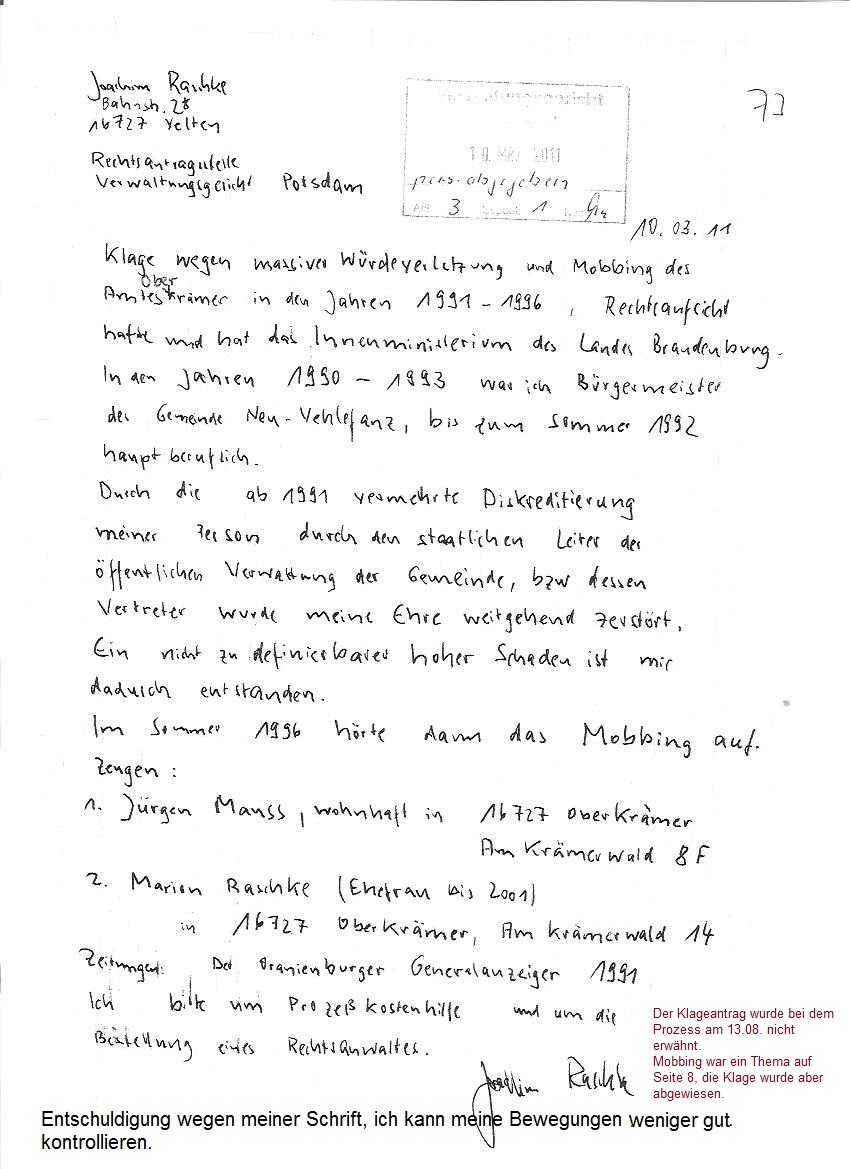 Joachim Raschke
Bahnstr. 28
16727 Velten
73
Rechtsantragstelle
Verwaltungsgericht Potsdam
10. MRZ. 2011
pers. abgegeben
3 1
10.03.11
Klage wegen massiver Würdeverletzung und Mobbing des
Amtes Oberkrämer in den Jahren 1991 - 1996, Rechtsaufsicht
hatte und hat das Innenministerium des Landes Brandenburg.
In den Jahren 1990 - 1993 war ich Bürgermeister
der Gemeinde Neu-Vehlefanz, bis zum Sommer 1992
hauptberuflich.
Durch die ab 1991 vermehrte Diskreditierung
meiner Person durch den staatlichen Leiter der
öffentlichen Verwaltung der Gemeinde, bzw dessen
Vertreter wurde meine Ehre weitgehend zerstört.
Ein nicht zu definierbarer hoher Schaden ist mir
dadurch entstanden.
Im Sommer 1996 hörte dann das Mobbing auf.
Zeugen:
1. Jürgen Mauss, wohnhaft in 16727 Oberkrämer
Am Krämerwald 8F
2. Marion Raschke (Ehefrau bis 2001)
in 16727 Oberkrämer, Am Krämerwald 14
Zeitungen: Der Oranienburger Generalanzeiger 1991
Ich bitte um Prozeßkostenhilfe und um die
Bestellung eines Rechtsanwaltes.
Joachim Raschke
Der Klageantrag wurde bei dem
Prozess am 13.08. nicht
erwähnt.
Mobbing war ein Thema auf
Seite 8, die Klage wurde aber
abgewiesen.
Entschuldigung wegen meiner Schrift, ich kann meine Bewegungen weniger gut
kontrollieren.